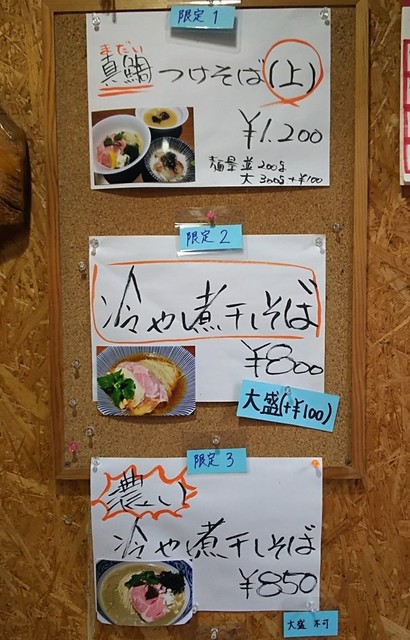 限定 1
まだい
真鯛 つけそば(上)
¥1.200
麺量 並 200g
大 300g+¥100
限定 2
冷や煮干しそば
¥800
大盛(+¥100)
限定 3
濃ょい
冷や煮干しそば
¥850
大盛 不可